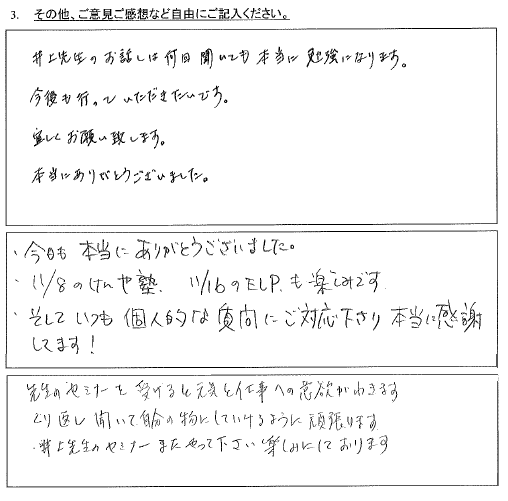 3. その他、ご意見ご感想など自由にご記入ください。
井上先生のお話しは何回聞いても本当に勉強になります。
今後も行っていただきたいです。
宜しくお願い致します。
本当にありがとうございました。
・今日も本当にありがとうございました。
・11/8のけんや塾、11/16のELP、も楽しみです
・そしていつも個人的な質問にご対応下さり本当に感謝
してます!
先生のセミナーを受けると元気と仕事への意欲がわきます
くり返し聞いて自分の物にしていけるように頑張ります
・井上先生のセミナーまたやって下さい楽しみにしております